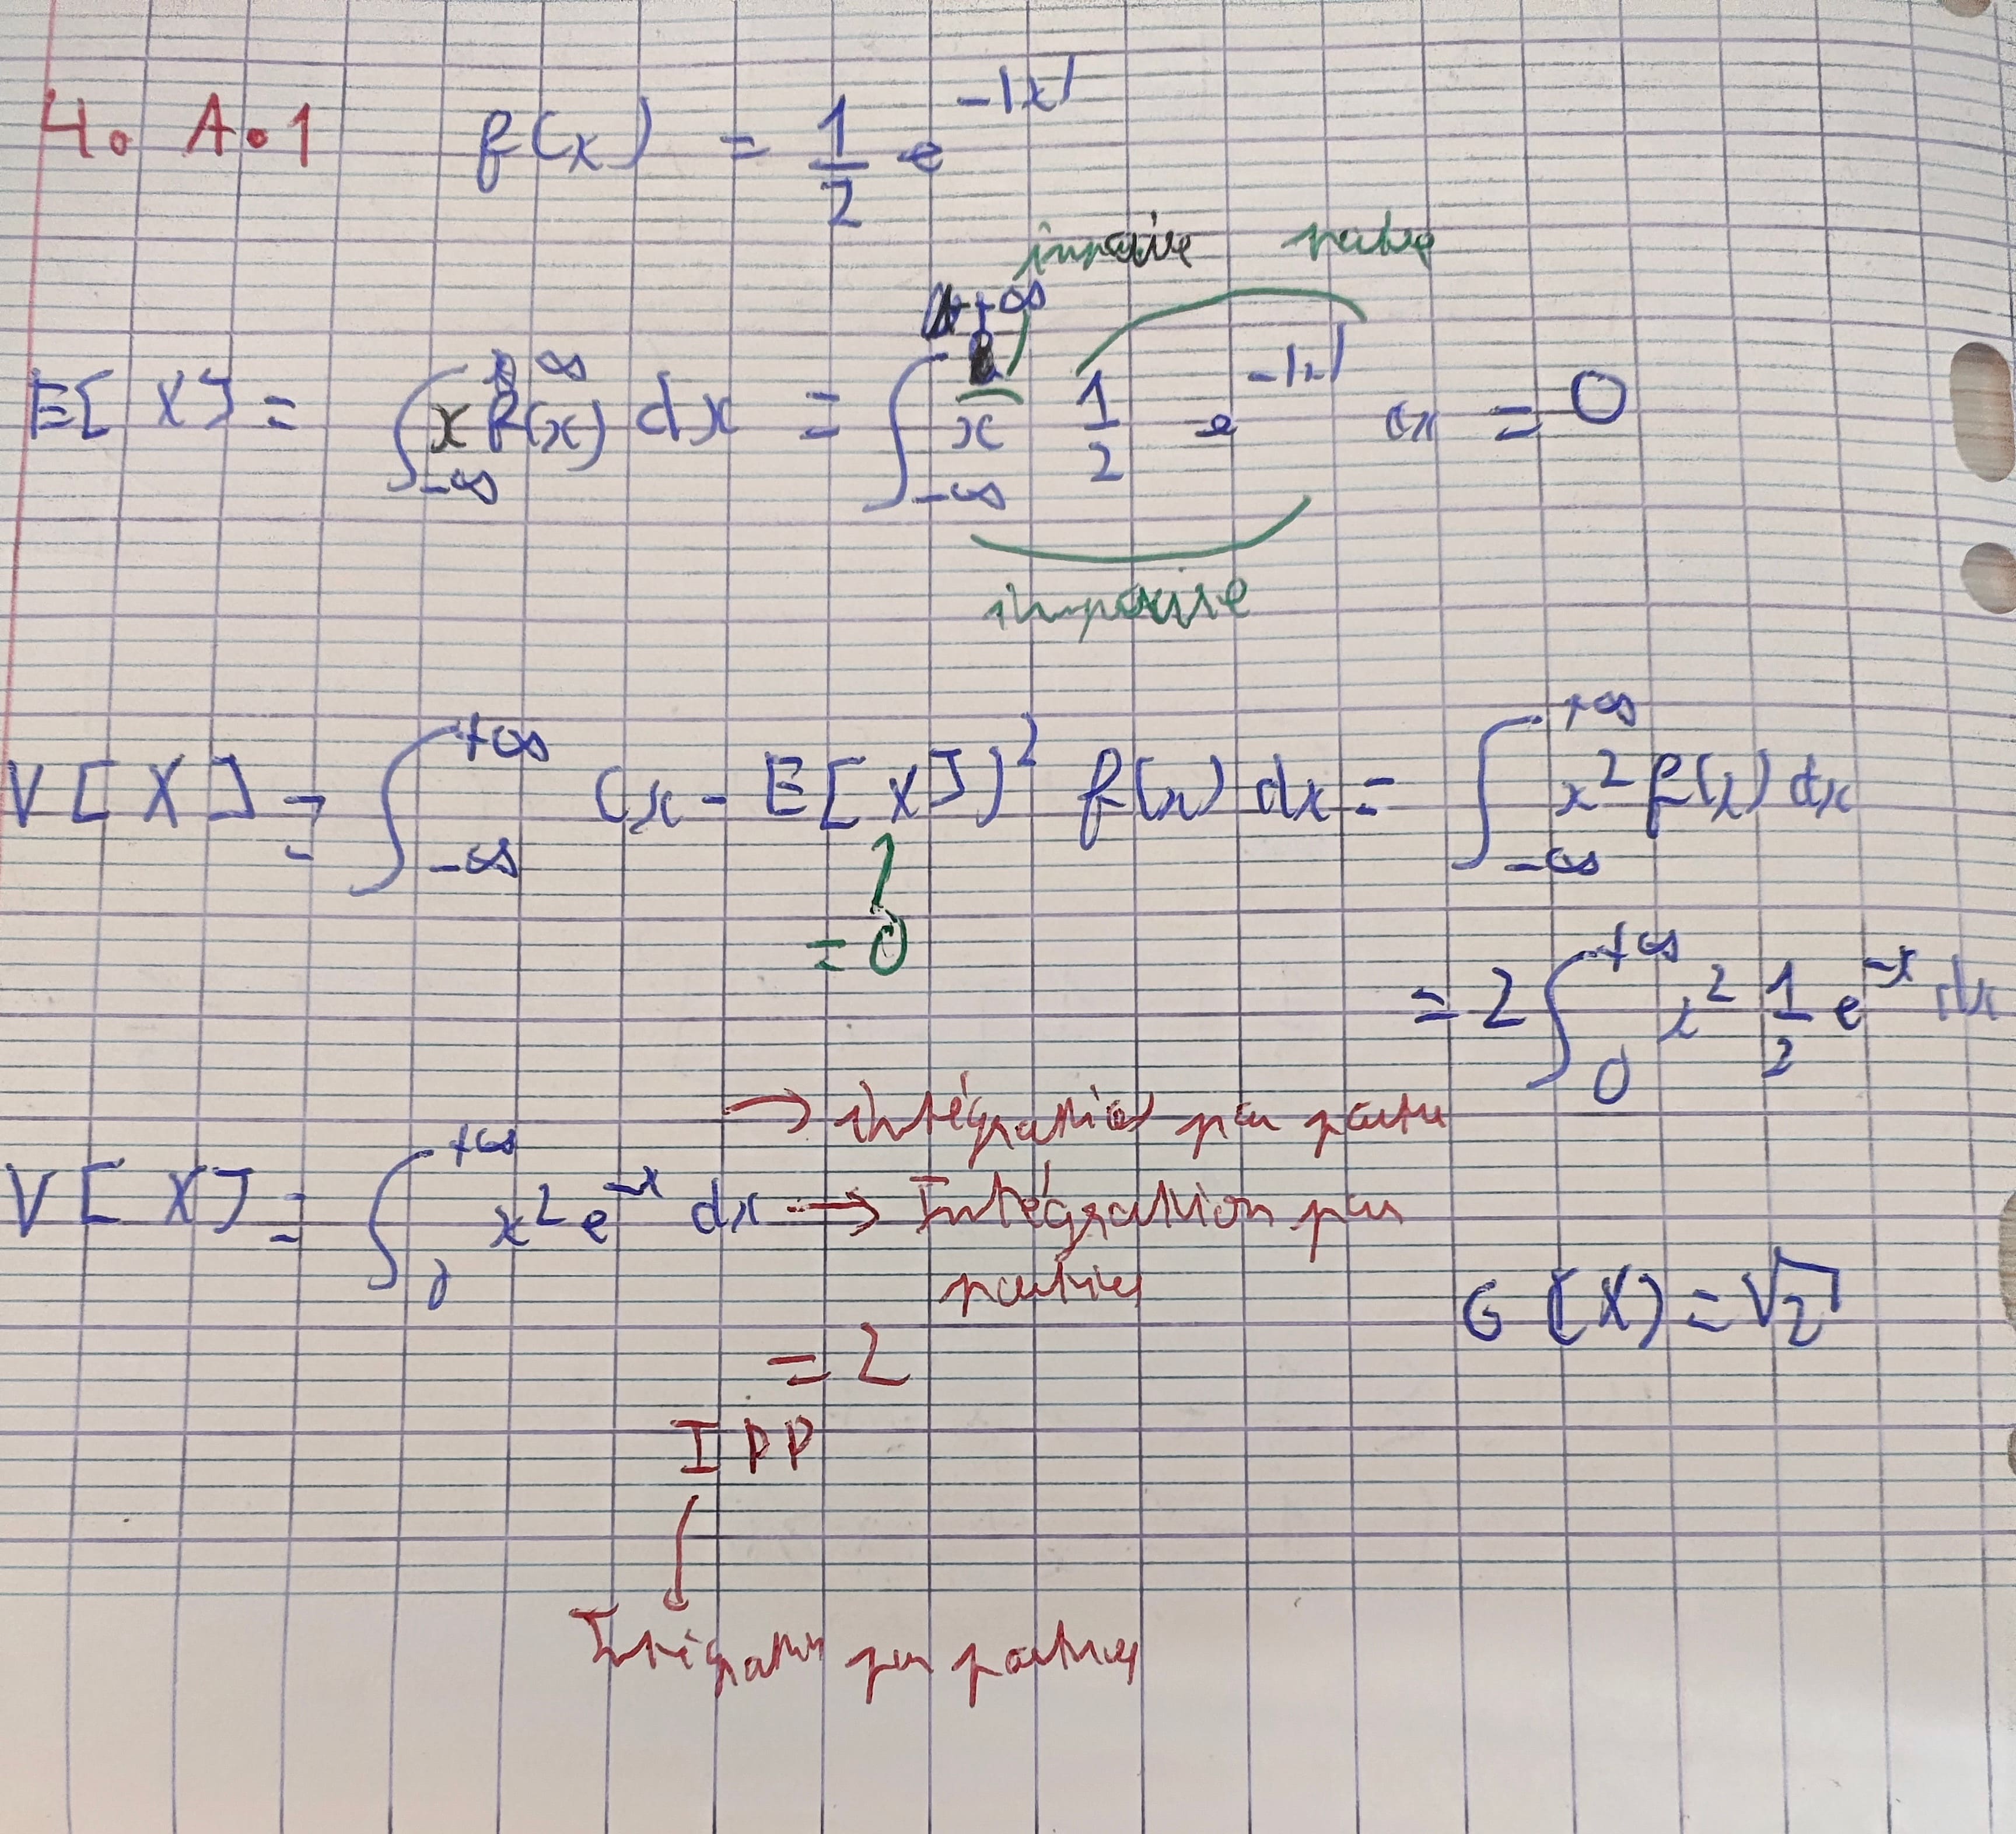 4. A.1 f(x) = 1/2 e^{-|x|}
impaire paire
E[X] = ∫_{-∞}^{+∞} x f(x) dx = ∫_{-∞}^{+∞} x 1/2 e^{-|x|} dx = 0
impaire
V[X] = ∫_{-∞}^{+∞} (x - E[X])² f(x) dx = ∫_{-∞}^{+∞} x² f(x) dx
= 0
= 2 ∫_0^{+∞} x² 1/2 e^{-x} dx
→ intégration par partie
V[X] = ∫_0^{+∞} x² e^{-x} dx → Intégration par
parties
σ(X) = √2
= 2
IPP
Intégration par parties